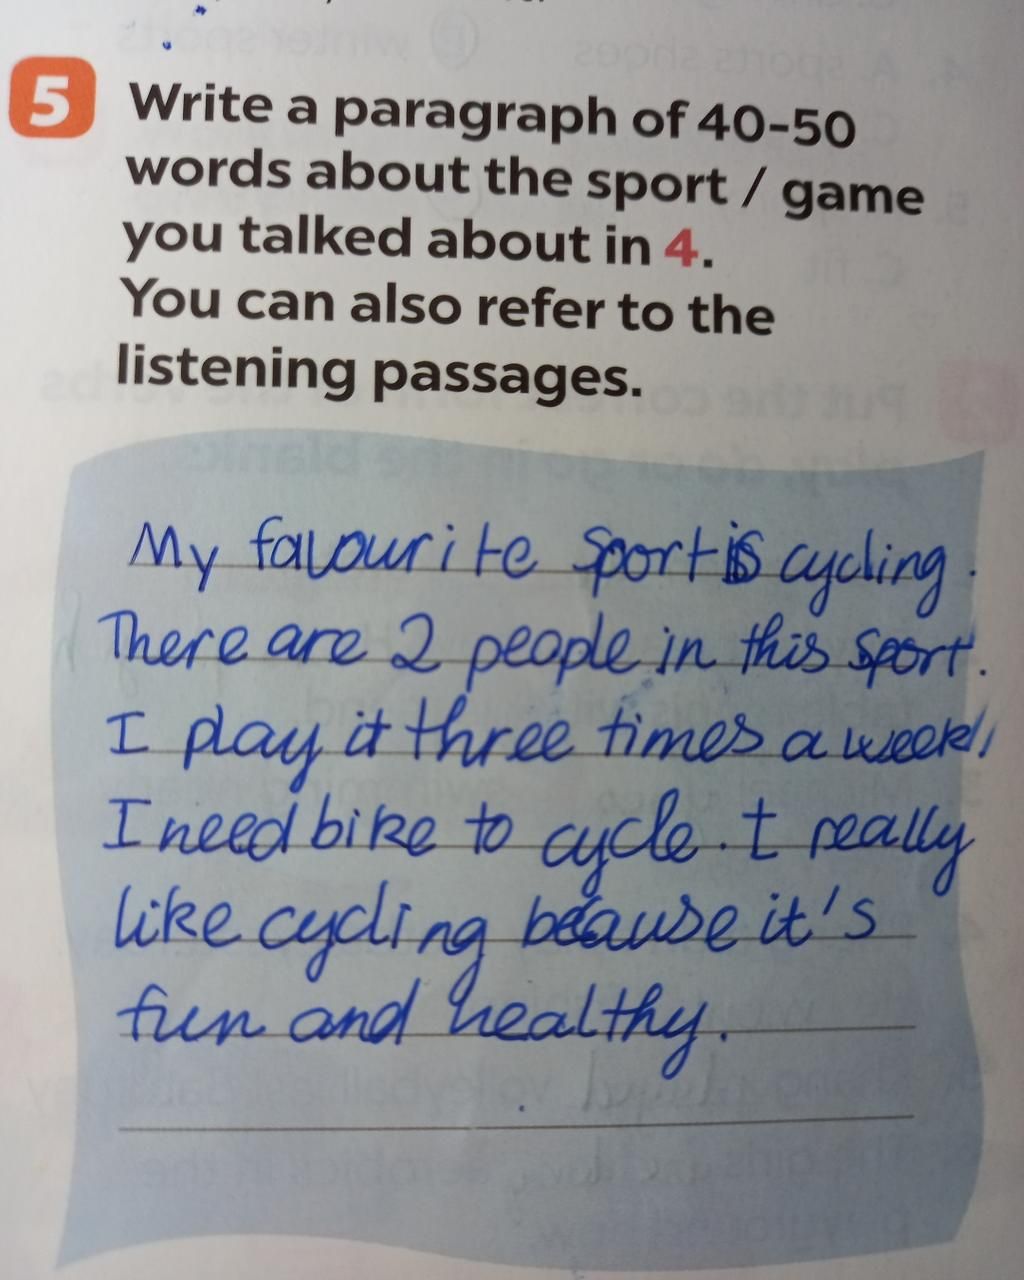 5 Write a paragraph of 40-50
words about the sport / game
you talked about in 4.
You can also refer to the
listening passages.
My favourite sport is cycling.
There are 2 people in this sport.
I play it three times a week!
I need bike to cycle. I really
like cycling because it's
fun and healthy.